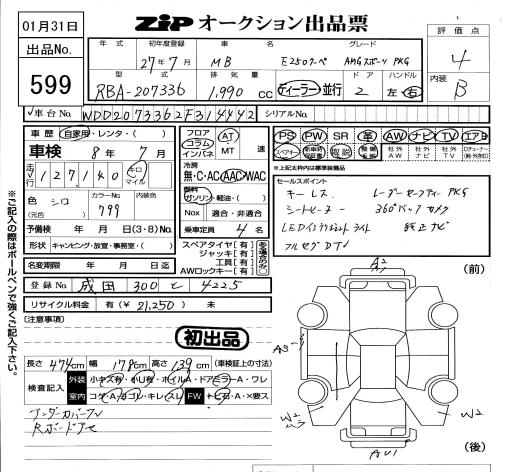 01月31日
出品No.
599
ZiP オークション出品票
評価点
4
内装
B
年式 初年度登録 車名 グレード
27年7月 MB E250クーペ AMGスポーツPKG
型式 排気量 ドア ハンドル
RBA-207336 1,990 cc ディーラー・並行 2 左・右
車台No. WDD2073362F314442 シリアルNo.
車歴 自家用・レンタ・( )
車検 8年7月
走行 127,140 キロ マイル
色(元色) シロ カラーNo. 799 内装色
予備検 年 月 日 (3・8)No.
形状 キャンピング・放宣・事務室・( )
名変期限 年 月 日迄
フロア コラム インパネ AT MT 速
冷房
無・C・AC AAC WAC
燃料
ガソリン・軽油・( )
Nox 適合・非適合
乗車定員 4名
スペアタイヤ【有】
ジャッキ【有】
工具【有】
AWロックキー【有】
PS PW SR 革 AW ナビ TV エアB
スペアキー 新車時保証書 取説 整備手帳 社外AW 社外ナビ 社外TV
上記太枠内は標準装備品
セールスポイント
キーレス レーダーセーフティーPKG
シートヒーター 360°バックカメラ
LEDインテリジェントライト 純正ナビ
フルセグDTV
登録No. 成田 300 と 4225
リサイクル料金 有(¥21,250) 未
(注意事項)
初出品
長さ 474cm 幅 178cm 高さ 139cm (車検証上の寸法)
検査記入 外装 小キズ有・小凹有・ホイルA・ドアミラーA・ワレ
室内 コゲ・A・ヨゴレ・キレ・スレ FW トビ石・A・×要ス
アンダーカバーワレ
Rボードアセ
※ご記入の際はボールペンで強くご記入下さい。
(前)
A2
A3
W2
W2
AU1
(後)